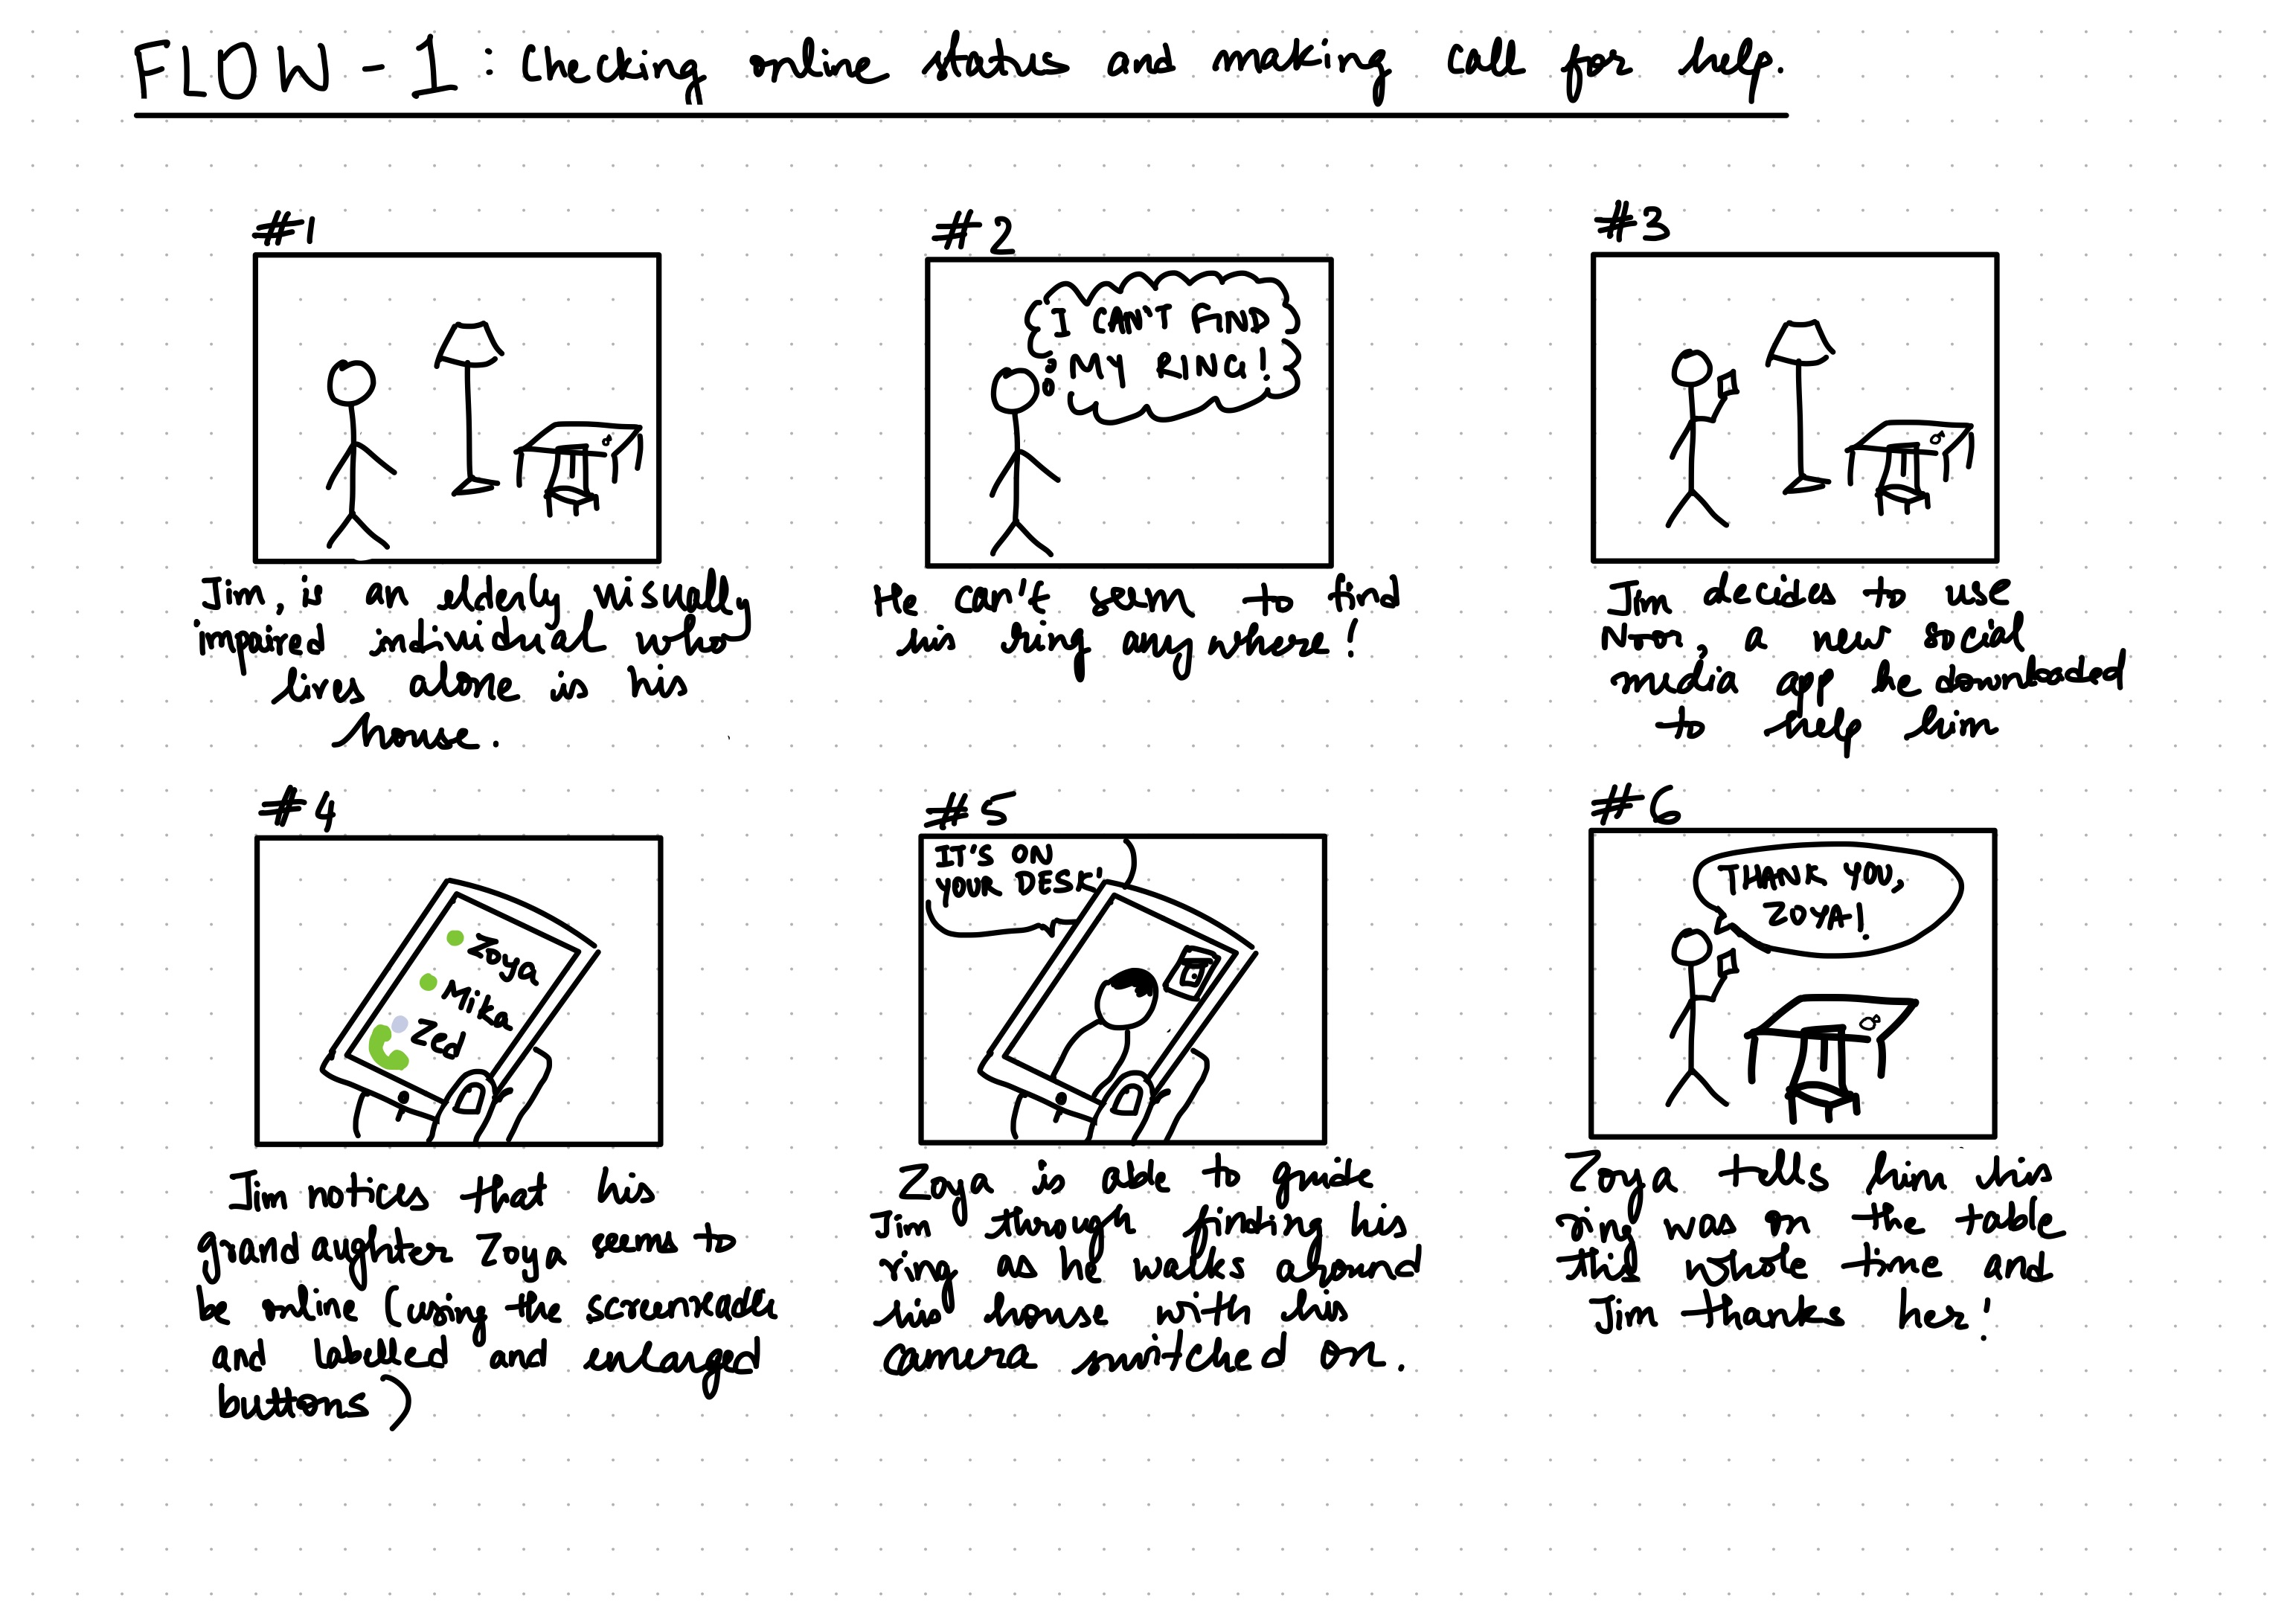 FLOW - 1 : Checking online status and making call for help.
#1
Jim, is an elderly visually
impaired individual who
lives alone is his
house.
#2
I CAN'T FIND
MY RING!
He can't seem to find
his ring anywhere!
#3
Jim decides to use
Noor, a new social
media app he downloaded
to help him
#4
Zoya
Mika
Zed
Jim notices that his
grandaughter Zoya seems to
be online (using the screenreader
and labelled and enlarged
buttons)
#5
IT'S ON
YOUR DESK!
Zoya is able to guide
Jim through finding his
ring as he walks around
his house with his
camera switched on.
#6
THANK YOU,
ZOYA!
Zoya tells him his
ring was on the table
this whole time and
Jim thanks her!